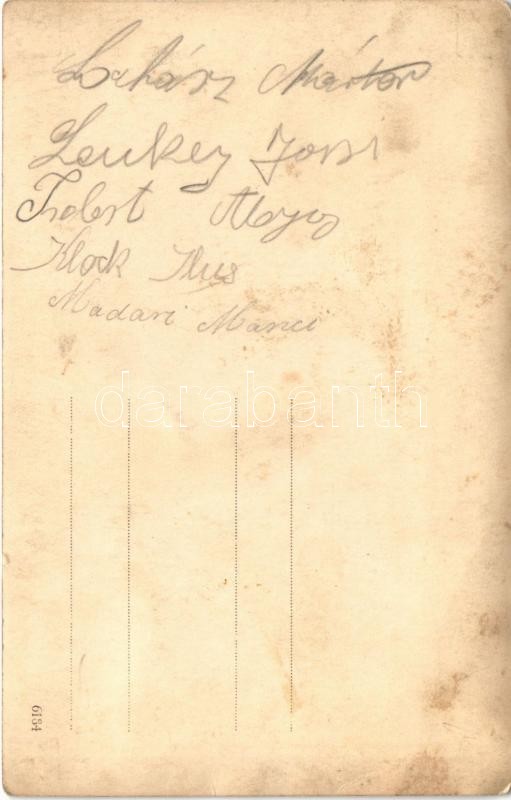 Lakász Márton
Leukey Jossi
Isolest Aloyz
Klock Ilus
Madari Manci
darabanth
6184